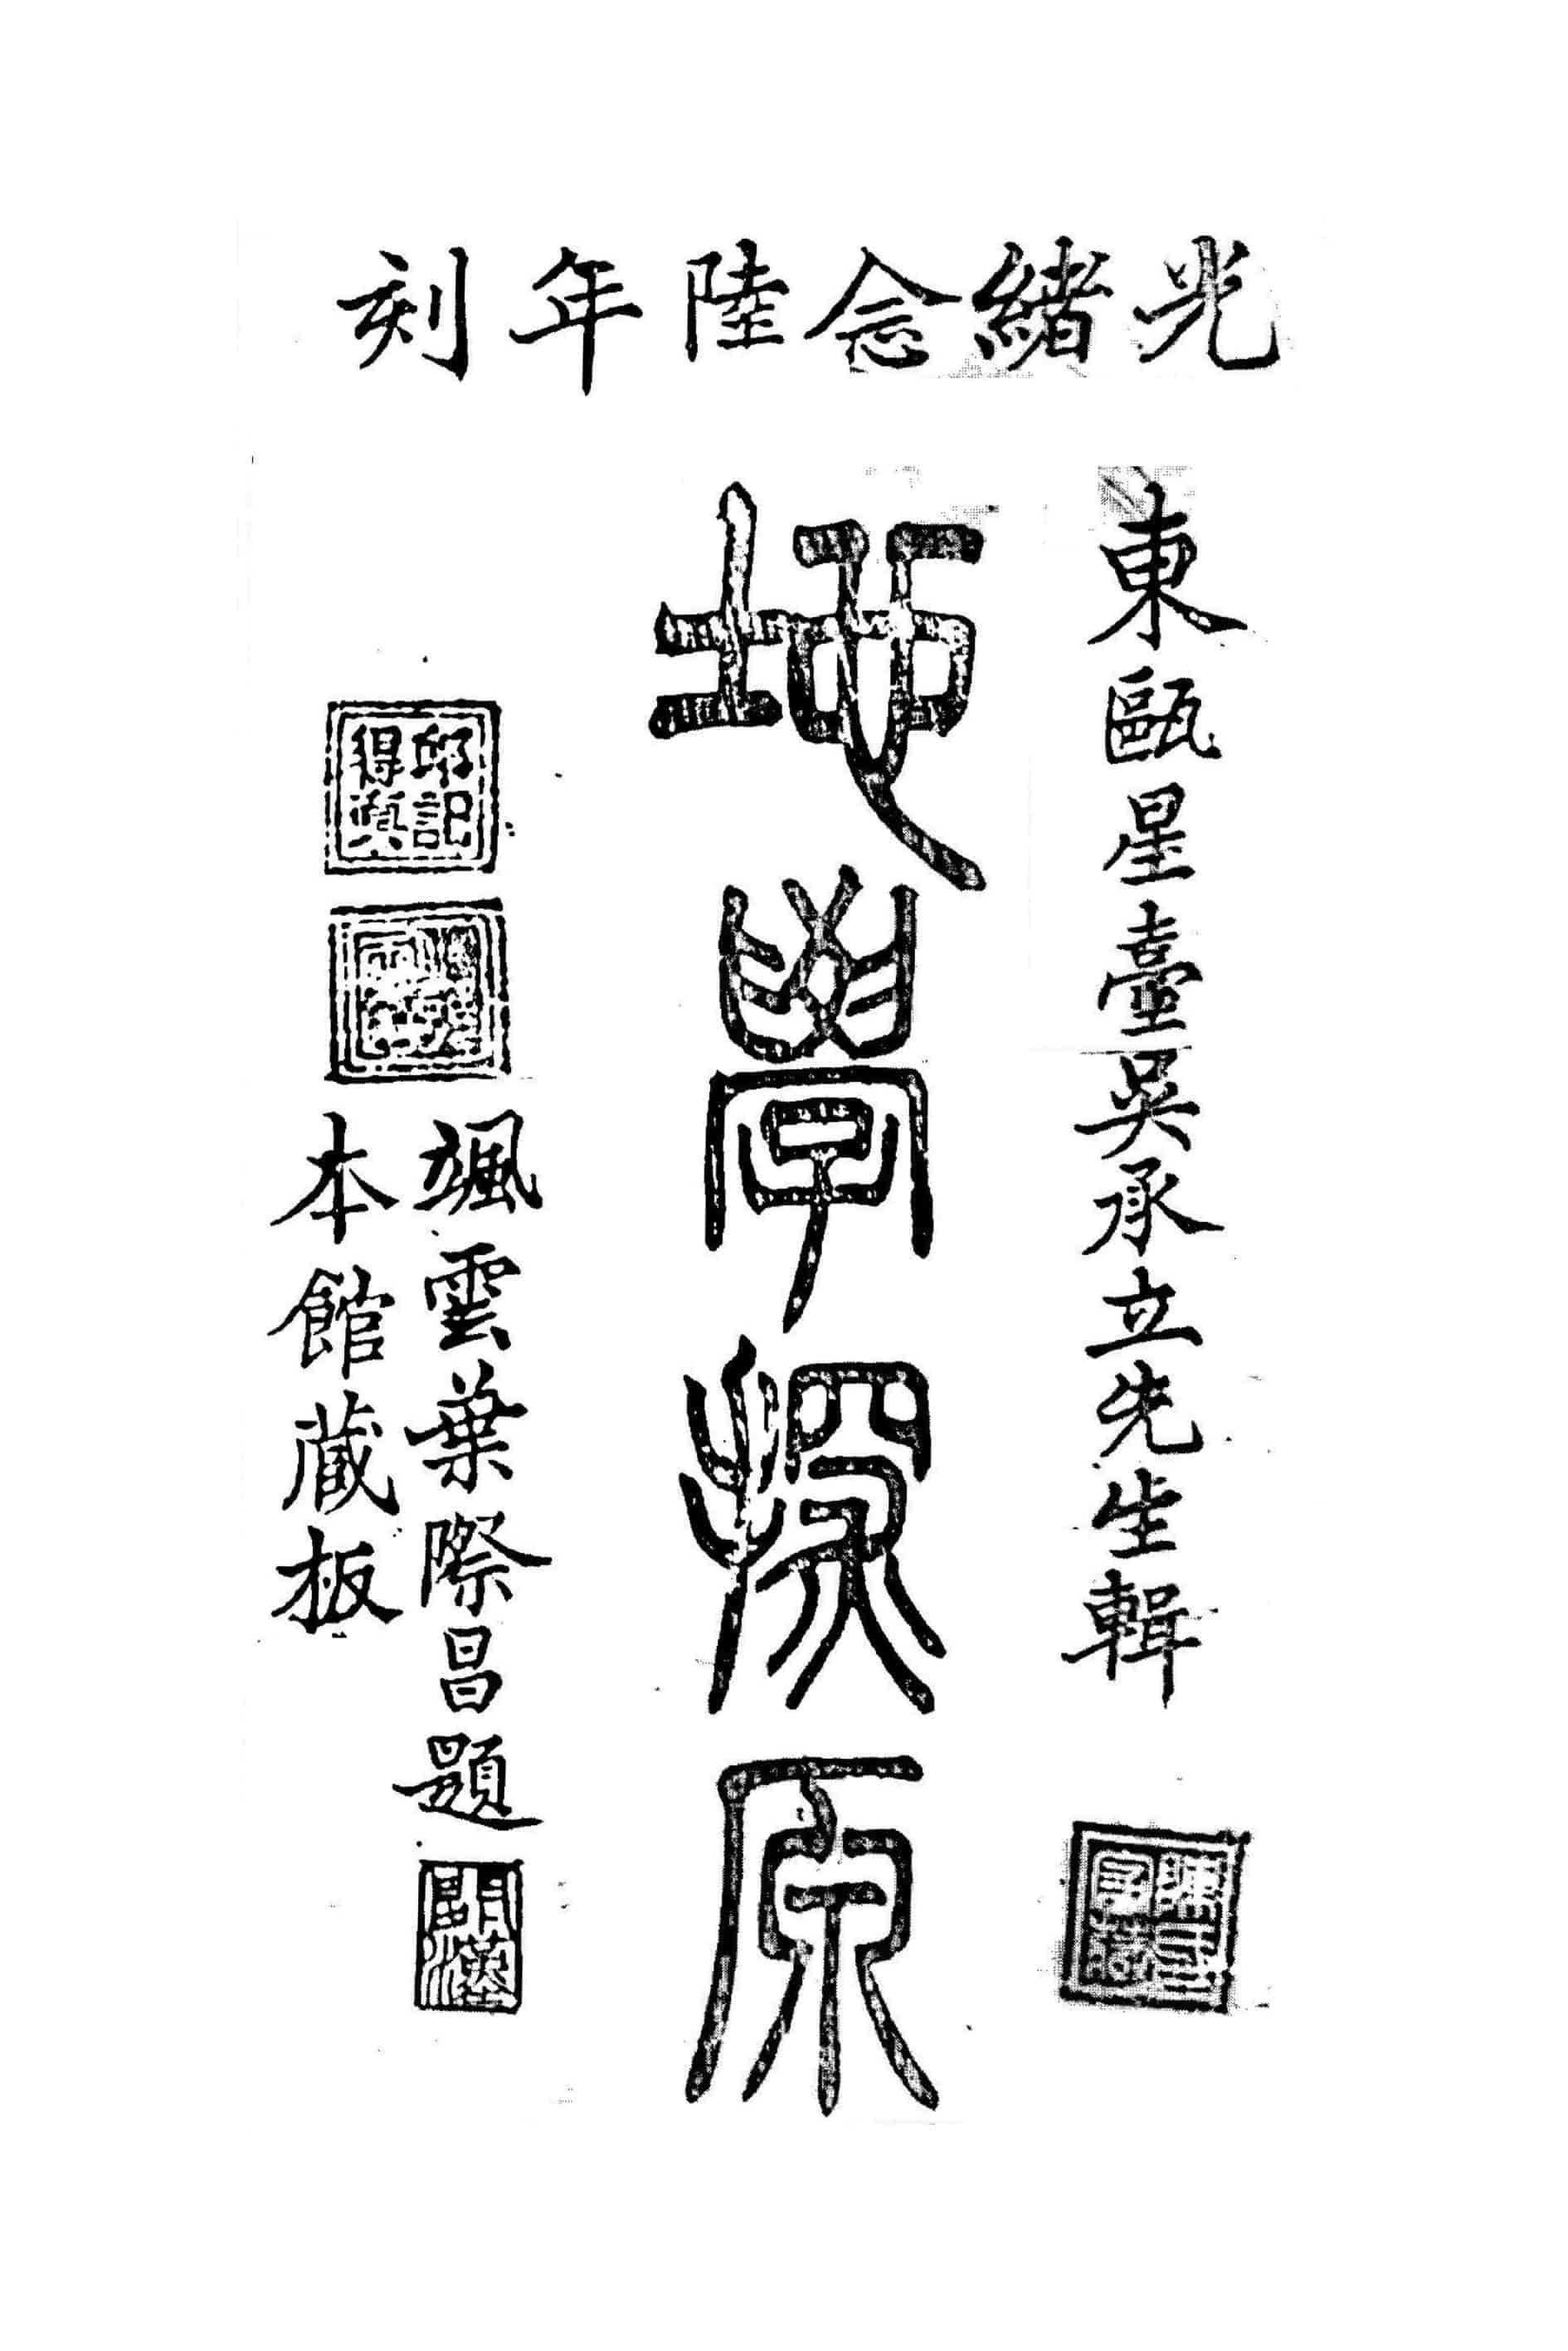 光緒念陸年刻
東甌星臺吳承立先生輯
地學探原
颯雲葉際昌題
本館藏板
邱記
得輿